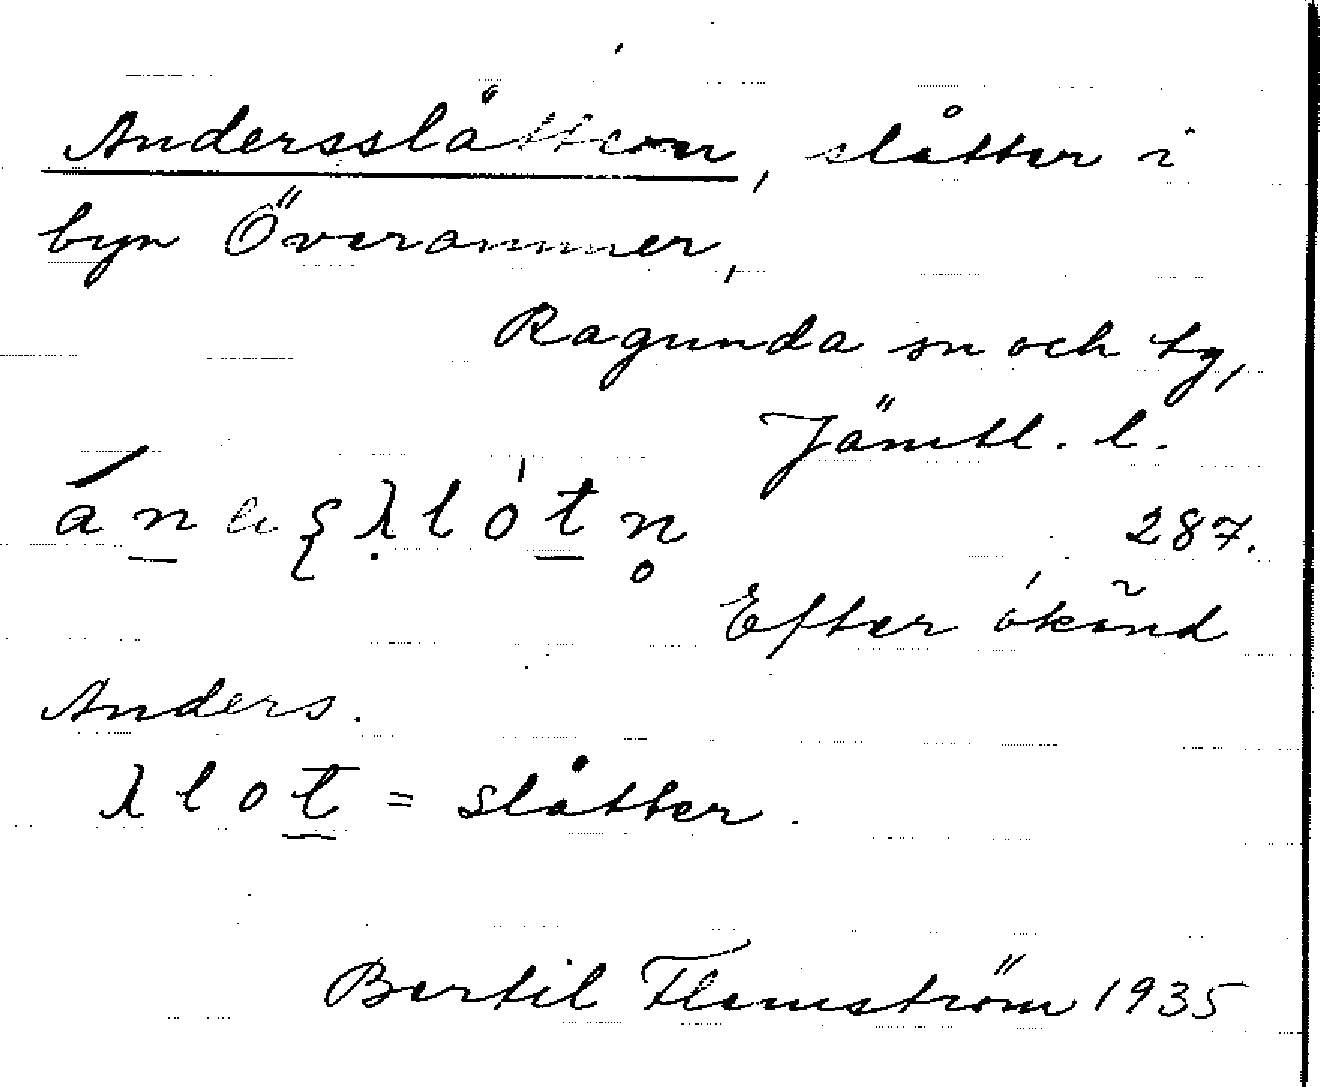 Andersslåtten, slåtter i
byn Överammer,
Ragunda sn och tg,
Jämtl. l.
287.
Efter okänd
Anders.
= slåtter.
Bertil Flemström 1935